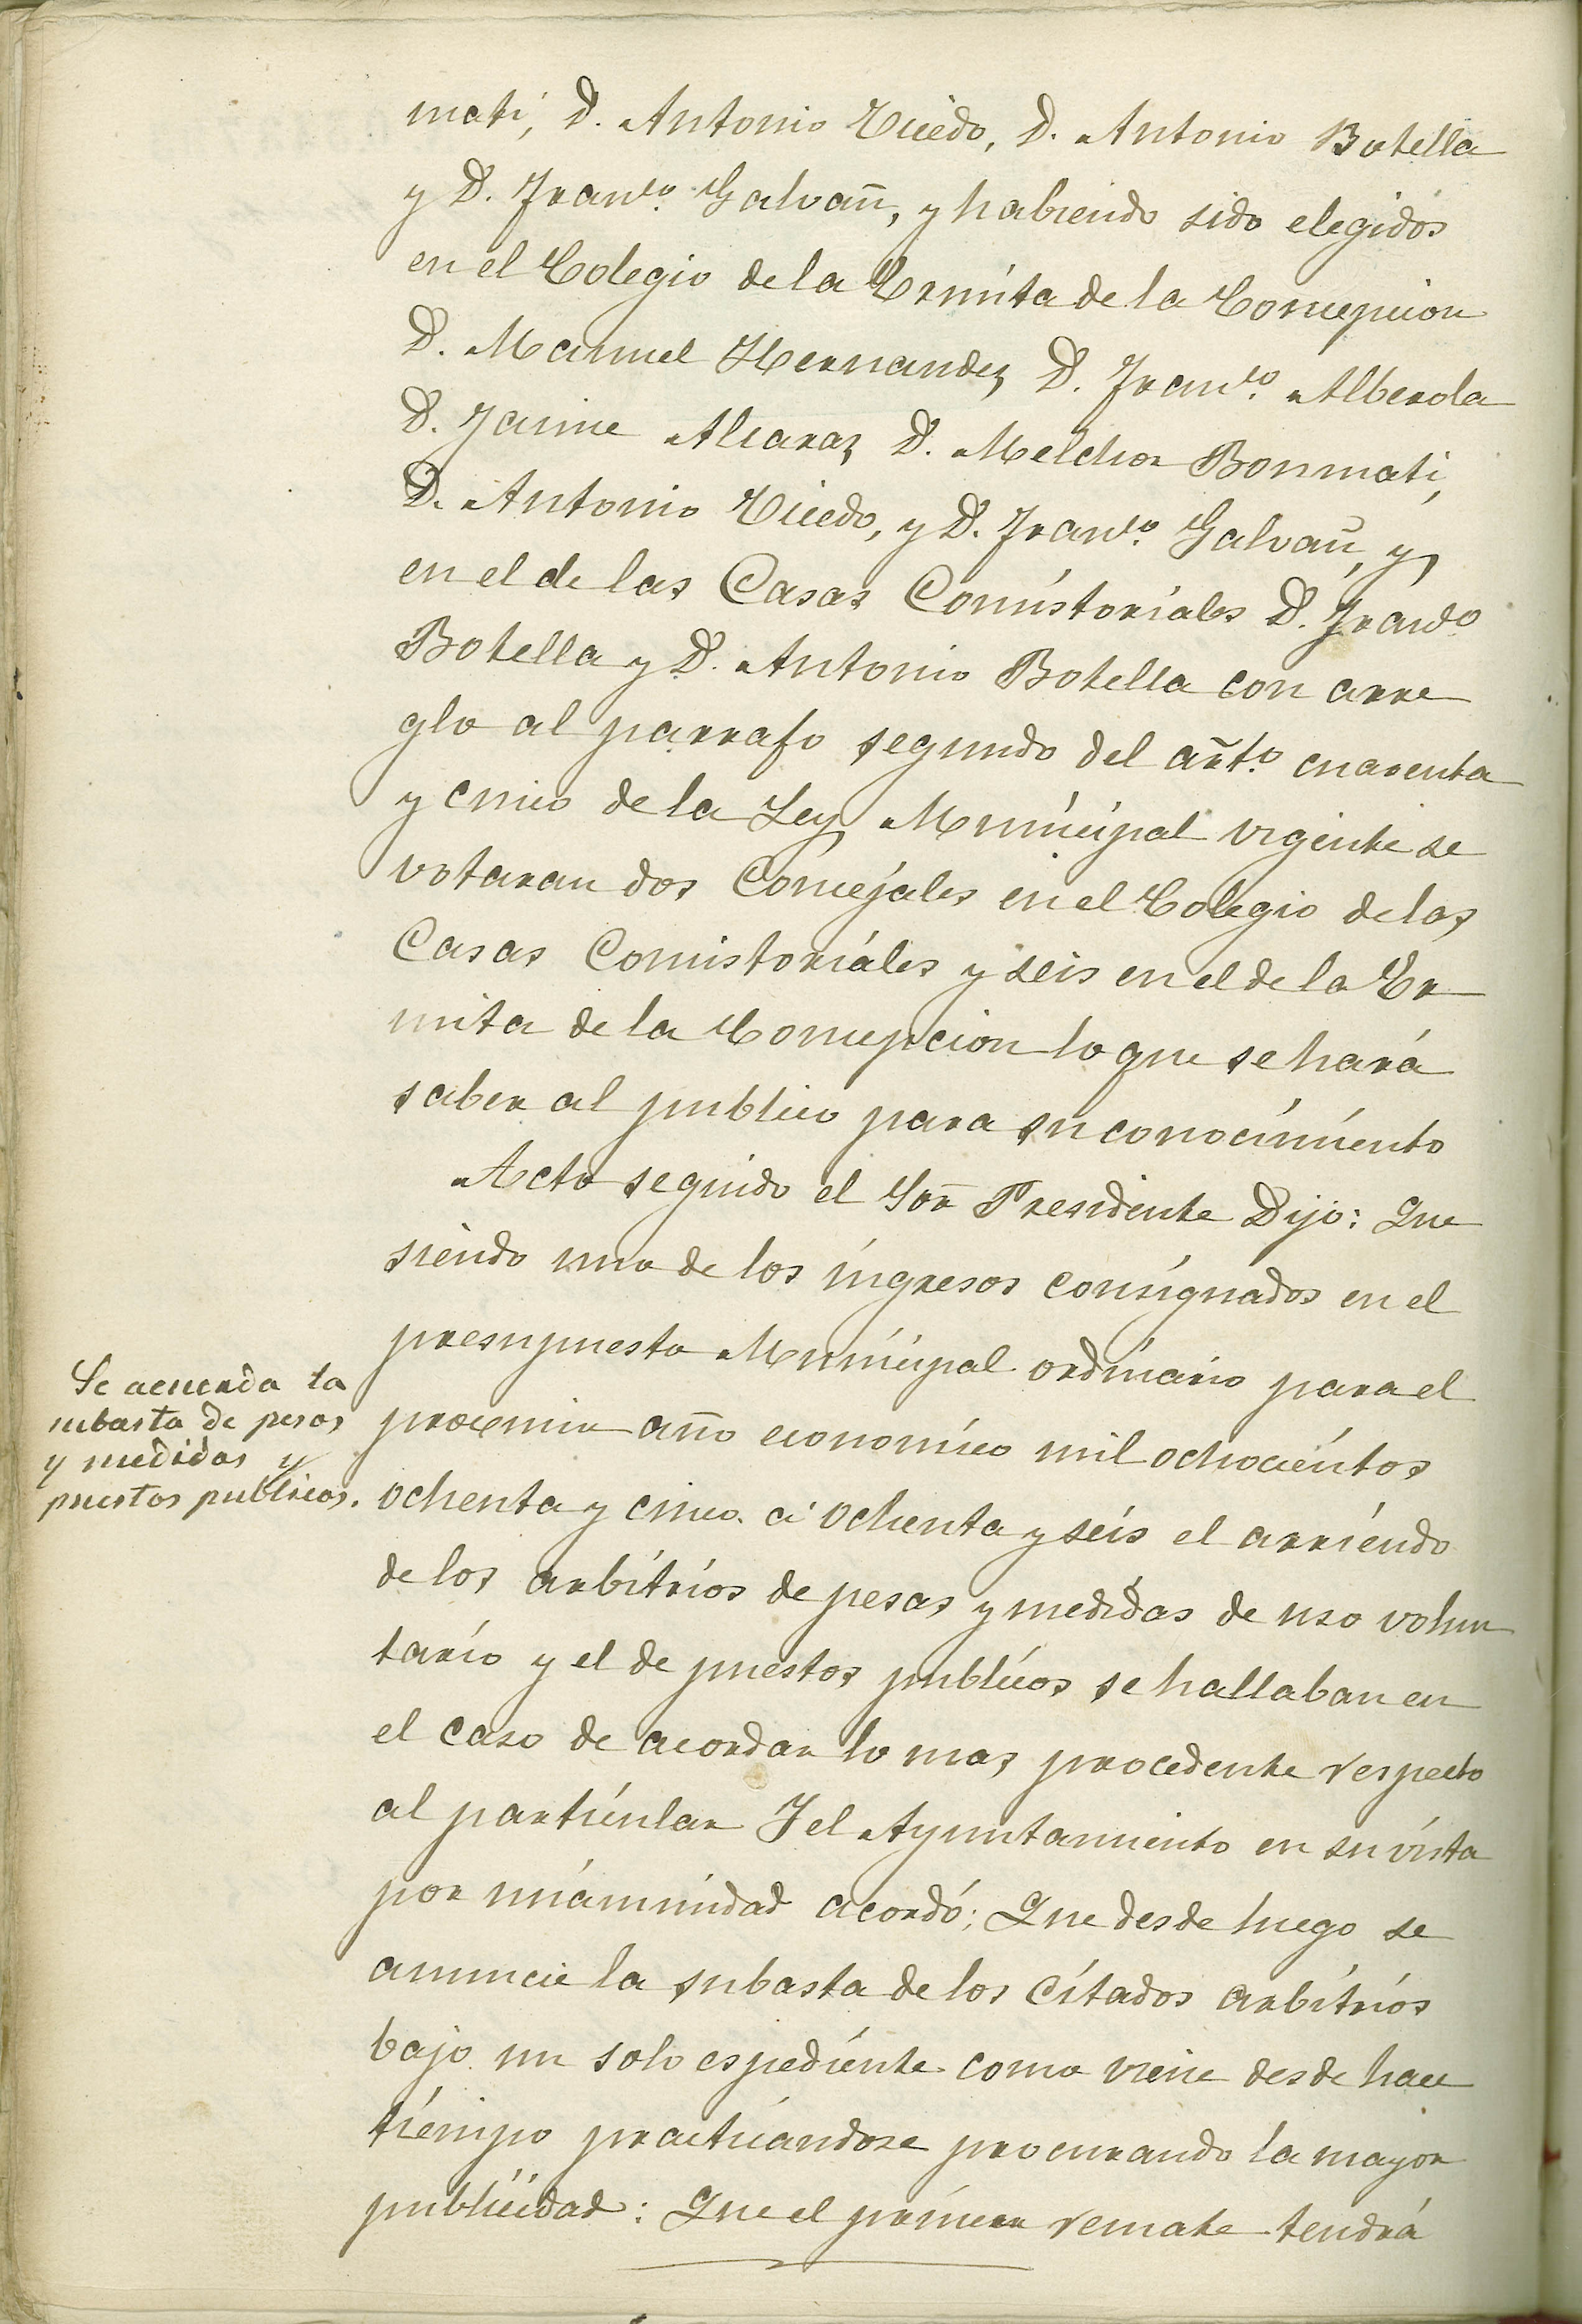 mati, D. Antonio Vicedo, D. Antonio Botella
y D. Fran.co Galvañ, y habiendo sido elegidos
en el Colegio de la Ermita de la Concepcion
D. Manuel Hernandez D. Fran.co Alberola
D. Jaime Alcaraz D. Melchor Bonmati,
D. Antonio Vicedo, y D. Fran.co Galvañ, y
en el de las Casas Consistoriales D. Fran.co
Botella y D. Antonio Botella con arre
glo al parrafo segundo del art.o cuarenta
y cinco de la Ley Municipal vigente se
votaran dos Concejales en el Colegio de las
Casas Consistoriales y seis en el de la Er
mita de la Concepcion lo que se hará
saber al publico para su conocimiento
Acto seguido el Sor Presidente Dijo: Que
siendo uno de los ingresos consignados en el
presupuesto Municipal ordinario para el
Se acuerda la
subasta de pesos
y medidas y
puestos publicos.
proximo año economico mil ochocientos
ochenta y cinco á ochenta y seis el arriendo
de los arbitrios de pesas y medidas de uso volun
tario y el de puestos publicos se hallaban en
el caso de acordar lo mas procedente respecto
al particular Y el Ayuntamiento en su vista
por unánimidad acordó; Que desde luego se
anuncie la subasta de los citados arbitrios
bajo un solo espediente como viene desde hace
tiempo practicandose procurando la mayor
publicidad: Que el primer remate tendrá